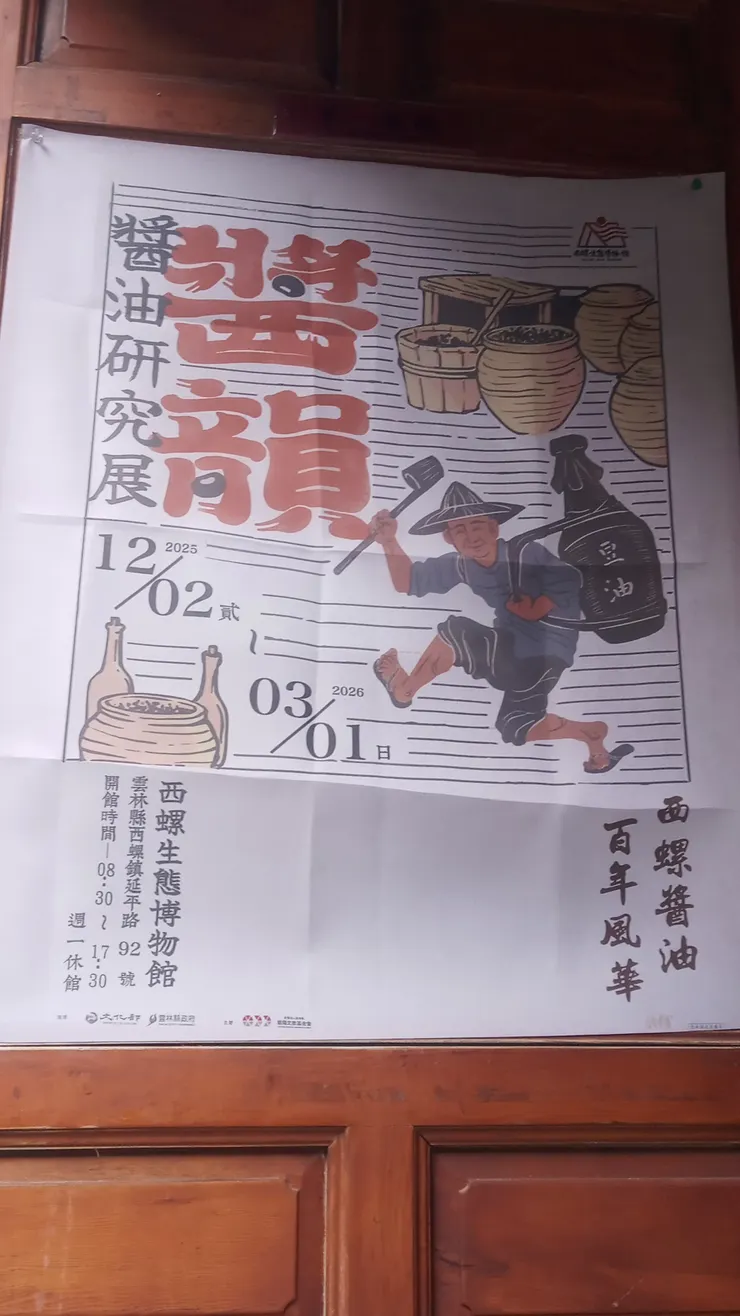 醬韻
醬油研究展
西螺生態博物館
豆油
2025
12/02 貳
~
2026
03/01 日
西螺醬油
百年風華
西螺生態博物館
雲林縣西螺鎮延平路 92 號
開館時間—08:30 ~ 17:30
週一休館
文化部
雲林縣政府